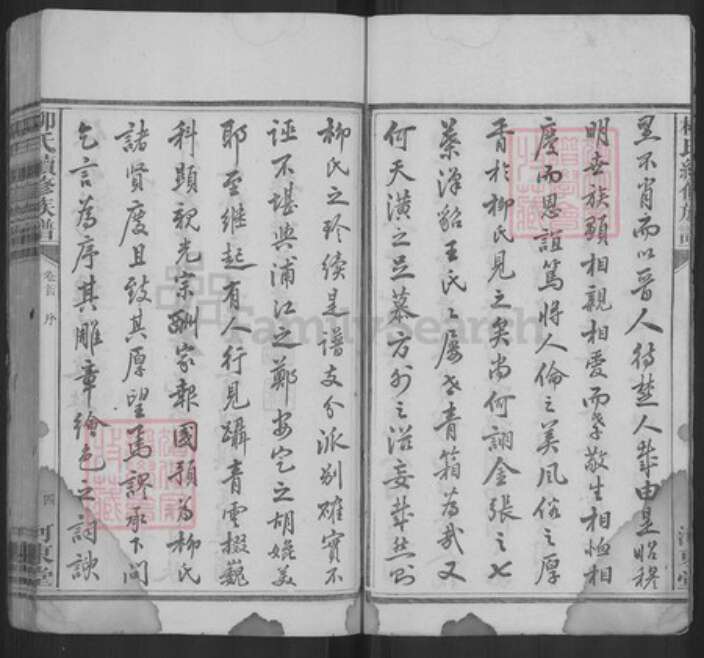 里不肖而以晉人待楚人哉由是昭穆
明世族類相親相愛而孝敬生相恤相
慶而恩誼篤將人倫之美風俗之厚
胥於柳氏見之矣尚何詡金張之七
葉洋貂王氏之屢世青箱為哉又
何天潢之足慕方外之滋妄哉然則
柳氏之珍續是譜支分派別確實不
誣不堪與浦江之鄭安定之胡媲美
耶至繼起有人行見躡青雲掇巍
科顯親光宗酬家報國預為柳氏
諸賢慶且致其厚望焉謬承下問
乞言為序其雕章繪色之詞諛
柳氏續修族譜
卷首 序
四 河東堂
FamilySearch